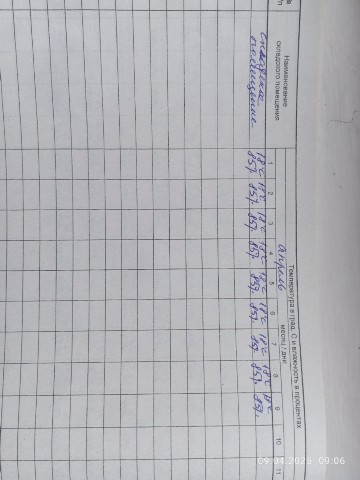 №
п/п
Наименование
складского помещения
Температура в град. С и влажность в процентах
месяц / дни
апрель
1 2 3 4 5 6 7 8 9 10 11
складское
помещение
18°C 18°C 18°C 18°C 18°C 18°C 18°C 18°C 18°C
85% 85% 85% 85% 85% 85% 85% 85% 85%
09.04.2025 09:06